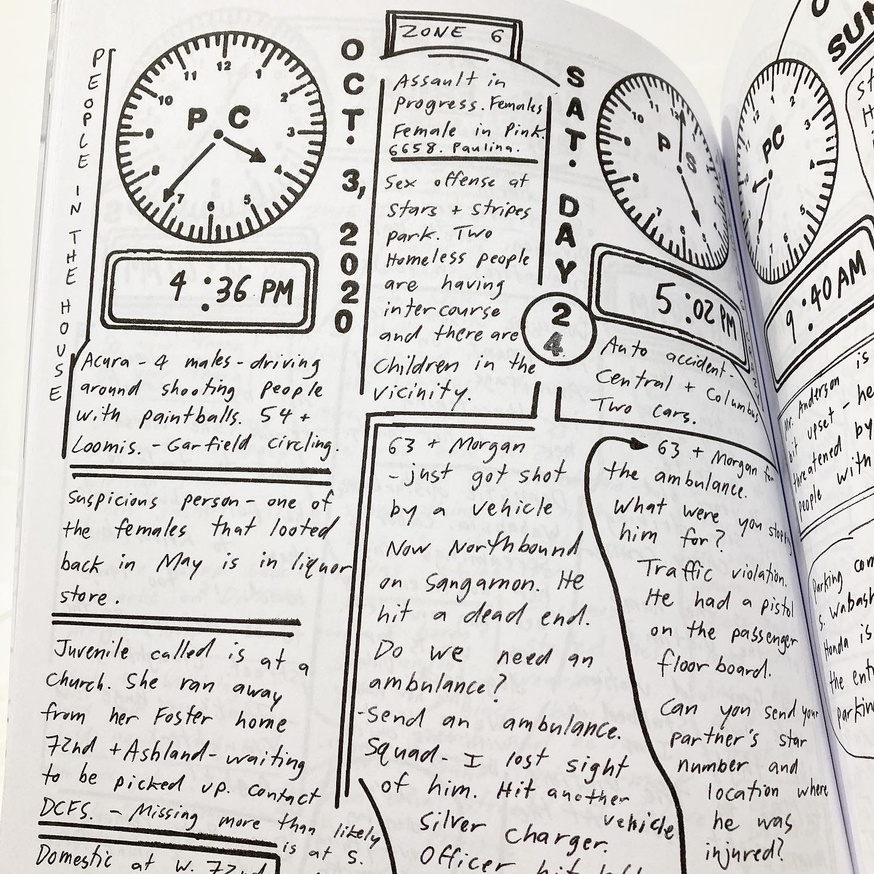 PEOPLE IN THE HOUSE
12
1
2
3
4
5
6
7
8
9
10
11
P C
4:36 PM
Acura - 4 males - driving
around shooting people
with paintballs. 54 +
Loomis. - Garfield circling.
Suspicious person - one of
the females that looted
back in May is in liquor
store.
Juvenile called is at a
church. She ran away
from her Foster home
72nd + Ashland - waiting
to be picked up. contact
DCFS. - Missing more than likely
is at S.
Domestic at W. 72nd
OCT. 3, 2020
ZONE 6
Assault in
Progress. Females
Female in Pink.
6658. Paulina.
Sex offense at
Stars + Stripes
park. Two
Homeless people
are having
intercourse
and there are
Children in the
Vicinity.
SAT. DAY
24
63 + Morgan
- just got shot
by a vehicle
Now Northbound
on Sangamon. He
hit a dead end.
Do we need an
ambulance?
-Send an ambulance.
Squad - I lost sight
of him. Hit another
vehicle
Silver charger.
Officer hit
P S
5:02 PM
Auto accident -
Central + Columbus
Two cars.
63 + Morgan for
the ambulance.
What were you
him for?
Traffic violation.
He had a pistol
on the passenger
floor board.
Can you send your
partner's star
number and
location where
he was
injured?
PC
9:40 AM
Anderson is
bit upset - he
threatened by
people with
Parking
S. Wabash
Honda is
the
parkin